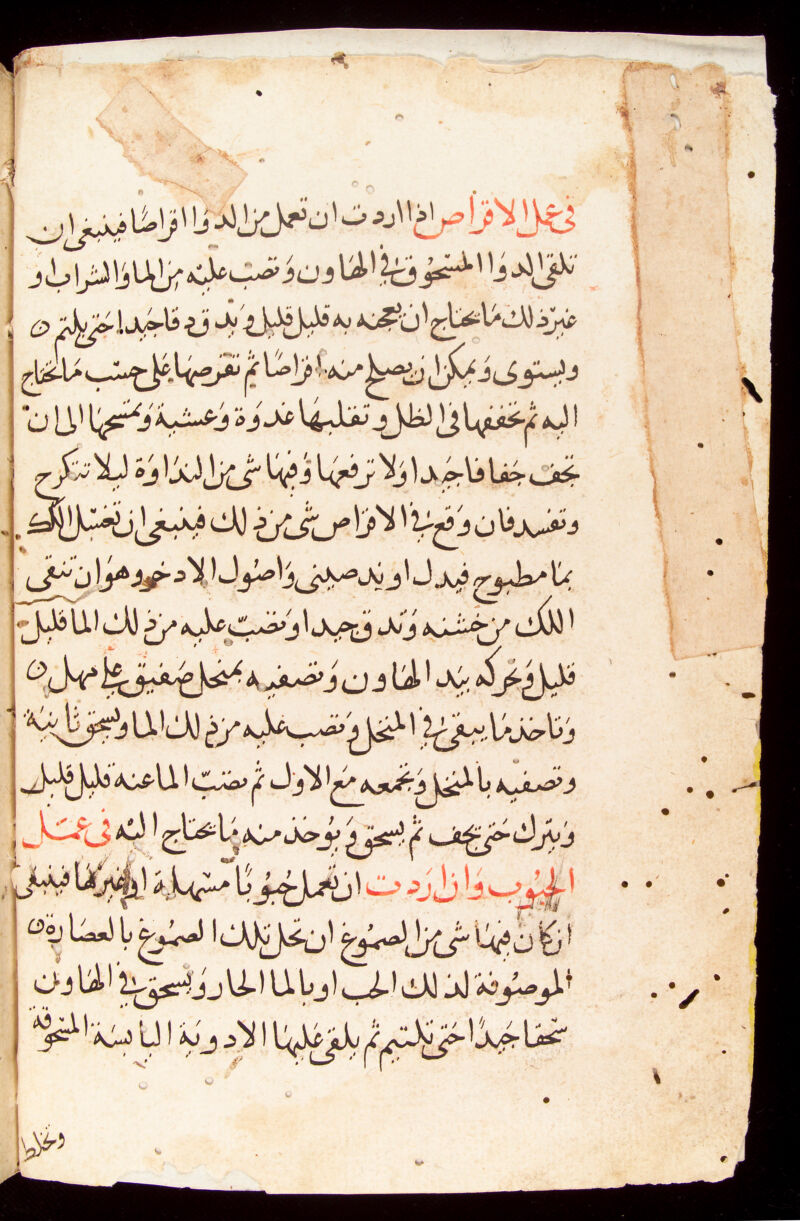 في عمل الاقراص اذا اردت ان تعمل من الدوا اقراصًا فينبغي ان
تلقي الدوا المسحوق في الهاون وتصب عليه من الما والشراب او
غير ذلك ما يحتاج ان يعجنه به قليل قليل ويدق دقا جيدا حتى يلتم
ويستوي ويمكن ان يصلح منه اقراصًا ثم تقرصها على حسب ما تحتاج
اليه ثم تجففها في الظل وتقلبها غدوة وعشية وتمسحها الى ان
تجف جفافا جيدا ولا ترفعها وفيها شي من النداوة ليلا تتكرج
وتفسد فان وقع في الاقراص شي من ذلك فينبغي ان تغسل اللك
بما مطبوح فيه راوند صيني واصول الادخر وهو ان تنقي
اللك من خشنه وتدق جيدا وتصبّ عليه من ذلك الما قليل
قليل وتحركه بيد الهاون وتصفيه بمنخل صفيق على مهل
وتاخذ ما يبقى في المنخل وتصب عليه من ذلك الما ويسحق ثانية
وتصفيه بالمنخل وتجمعه مع الاول ثم تصبّ الما عنه قليل قليل
ويترك حتى يجف ثم يسحق ويؤخذ منه ما يحتاج اليه في عمل
الحبوب وان اردت ان تعمل حبوبًا مسهلة او غيرها فينبغي
ان كان فيها شي من الصموغ ان تحل تلك الصموغ بالعصارة
الموصوفة لذلك الحب او بالما الحار ويسحق في الهاون
سحقا جيدًا حتى تلتيم ثم يلقى عليها الادوية اليابسة المسحوقة
وتخلط